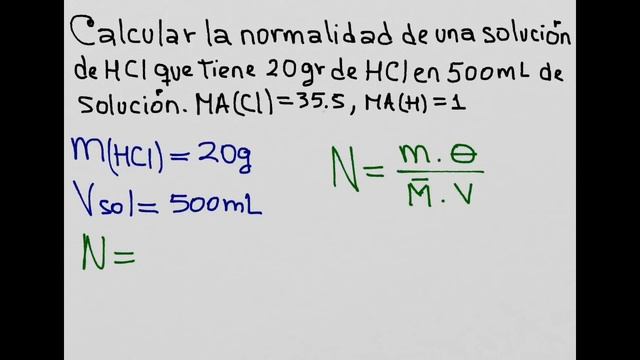 Calcular la normalidad de una solución
de HCl que tiene 20gr de HCl en 500mL de
solución. MA(Cl)=35.5, MA(H)=1
m(HCl)=20g
Vsol=500mL
N=
N= m.θ / M̄.V